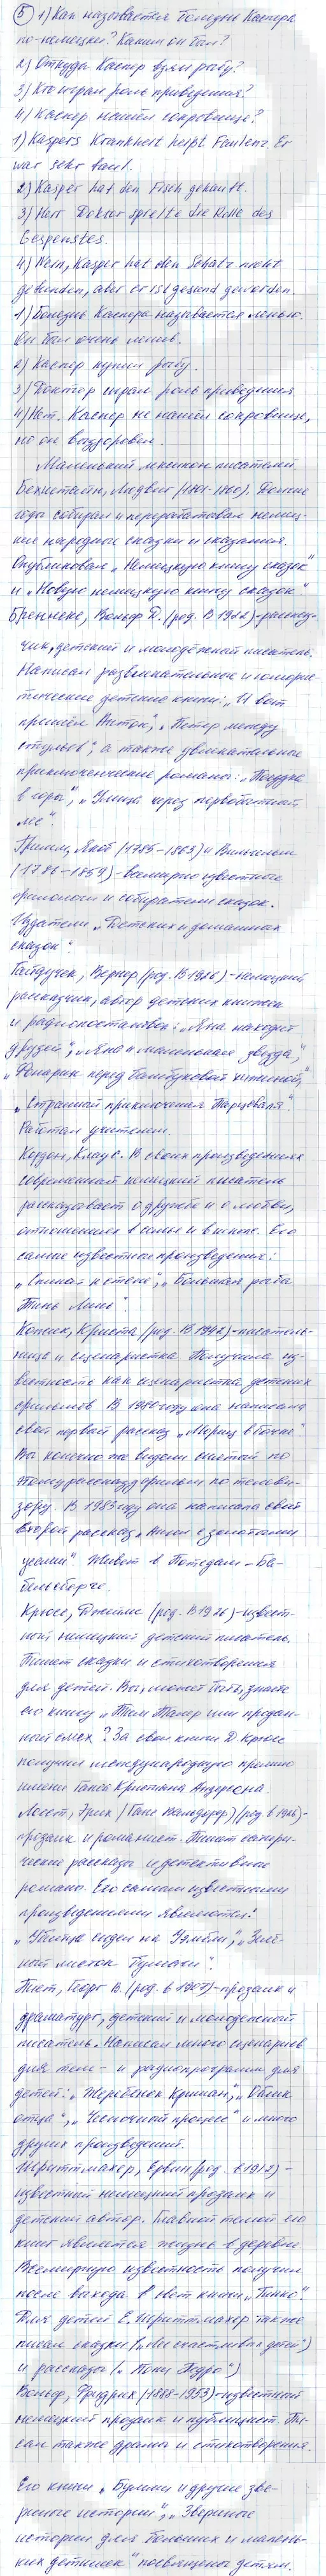 5 1) Как называется болезнь Каспера
по-немецки? Каким он был?
2) Откуда Каспер взял рыбу?
3) Кто играл роль приведения?
4) Каспер нашёл сокровище?
1) Kaspers Krankheit heißt Faulenz. Er
war sehr faul.
2) Kasper hat den Fisch gekauft.
3) Herr Doktor spielte die Rolle des
Gespenstes.
4) Nein, Kasper hat den Schatz nicht
gefunden, aber er ist gesund geworden.
1) Болезнь Каспера называется ленью.
Он был очень ленив.
2) Каспер купил рыбу.
3) Доктор сыграл роль приведения.
4) Нет. Каспер не нашёл сокровище,
но он выздоровел.
Маленький лексикон писателей.
Бехштайн, Людвиг (1801-1860). Долгие
годы собирал и перерабатывал немец-
кие народные сказки и сказания.
Опубликовал „Немецкую книгу сказок"
и „Новую немецкую книгу сказок."
Бреннеке, Вольф Д. (род. в 1922) - рассказ-
чик, детский и молодёжный писатель.
Написал развлекательные и юморис-
тические детские книги: „И вот
пришёл Антон", „Петер между
стульев", а также увлекательные
приключенческие романы: „Поездка
в горы", „Улица через первобытный
лес".
Гримм, Якоб (1785-1863) и Вильгельм
(1786-1859) - всемирно известные
филологи и собиратели сказок.
Издатели „Детских и домашних
сказок".
Гайдучек, Вернер (род. в 1926) - немецкий
рассказчик, автор детских книжек
и радиопостановок: „Яна находит
друзей", „Яна и маленькая звезда",
„Фонарик перед бамбуковой хижиной",
„Странный приключения Парцеваля".
Работал учителем.
Кордон, Клаус. В своих произведениях
современный немецкий писатель
рассказывает о дружбе и о любви,
отношениях в семье и в школе. Его
самые известные произведения:
„Спиной к стене", „Большая рыба
Тинь Линь".
Кожик, Криста (род. в 1942) - писатель-
ница и сценаристка. Получила из-
вестность как сценаристка детских
фильмов. В 1980 году она написала
свой первый рассказ „Мориц в бочке".
Вы конечно же видели снятый по
этому рассказу фильм по телеви-
зору. В 1983 году она написала свой
второй рассказ „Ангел с золотыми
усами". Живёт в Потсдам-Ба-
бельсберге.
Крюсс, Джеймс (род. в 1926) - извест-
ный немецкий детский писатель.
Пишет сказки и стихотворения
для детей. Вы, может быть, знаете
его книгу „Тим Талер или продан-
ный смех"? За свои книги Д. Крюсс
получил международную премию
имени Ганса Кристиана Андерсона
Лоест, Эрих (Ганс Вальдорф) (род в 1926) -
прозаик и романист. Пишет сатири-
ческие рассказы и детективные
романы. Его самыми известными
произведениями являются:
„Убийца сидел на Уэмбли", „Зелё-
ный листок бумаги".
Пиет, Георг В. (род. в 1907) - прозаик и
драматург, детский и молодежный
писатель. Написал много сценариев
для теле- и радиопрограмм для
детей: „Жеребёнок Кришан", „Облик
отца", „Чесночный процесс" и много
других произведений.
Штриттматтер, Эрвин (род. в 1912) -
известный немецкий прозаик и
детский автор. Главной темой его
книг является жизнь в деревне.
Всемирную известность получил
после выхода в свет книги „Тинко".
Для детей Е. Штриттматтер также
писал сказки („Три счастливых детей")
и рассказы („Пони Педро")
Вольф, Фридрих (1888-1953) - известный
немецкий прозаик и публицист. Пи-
сал также драмы и стихотворения.
Его книги „Бумми и другие зве-
риные истории", „Звериные
истории для больших и малень-
ких детишек" посвящены детям.